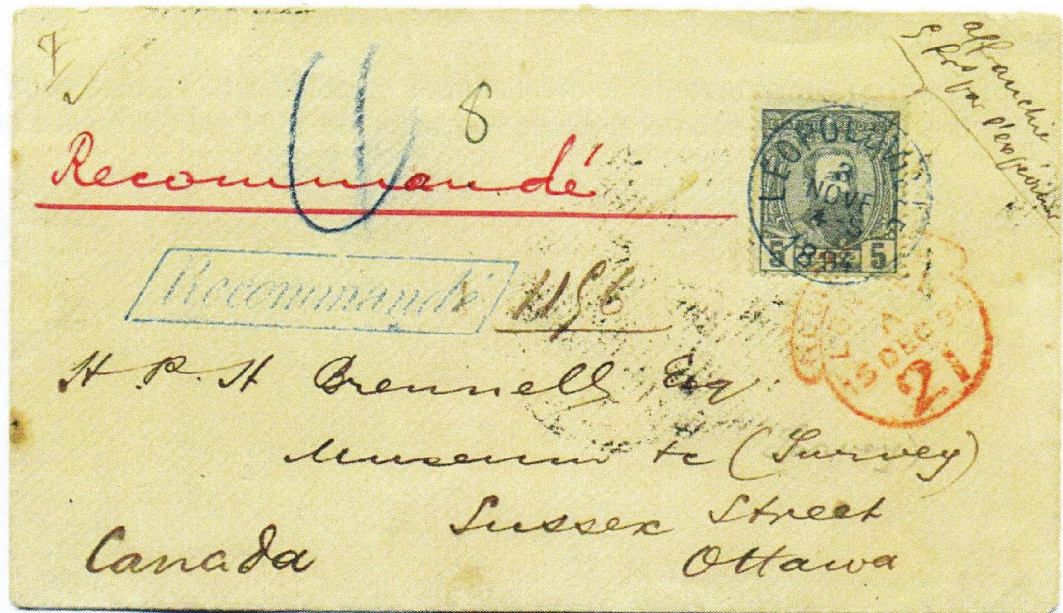 affranchie
5 frs par l'expéditeur
8
Recommandé
LEOPOLDVILLE
3
NOVE
4-S
5 5
Recommandé 1156
REGISTERED
LONDON
7
5 DEC
27
H. P. H Brumell Esq
Museum &c (Survey)
Sussex Street
Ottawa
Canada